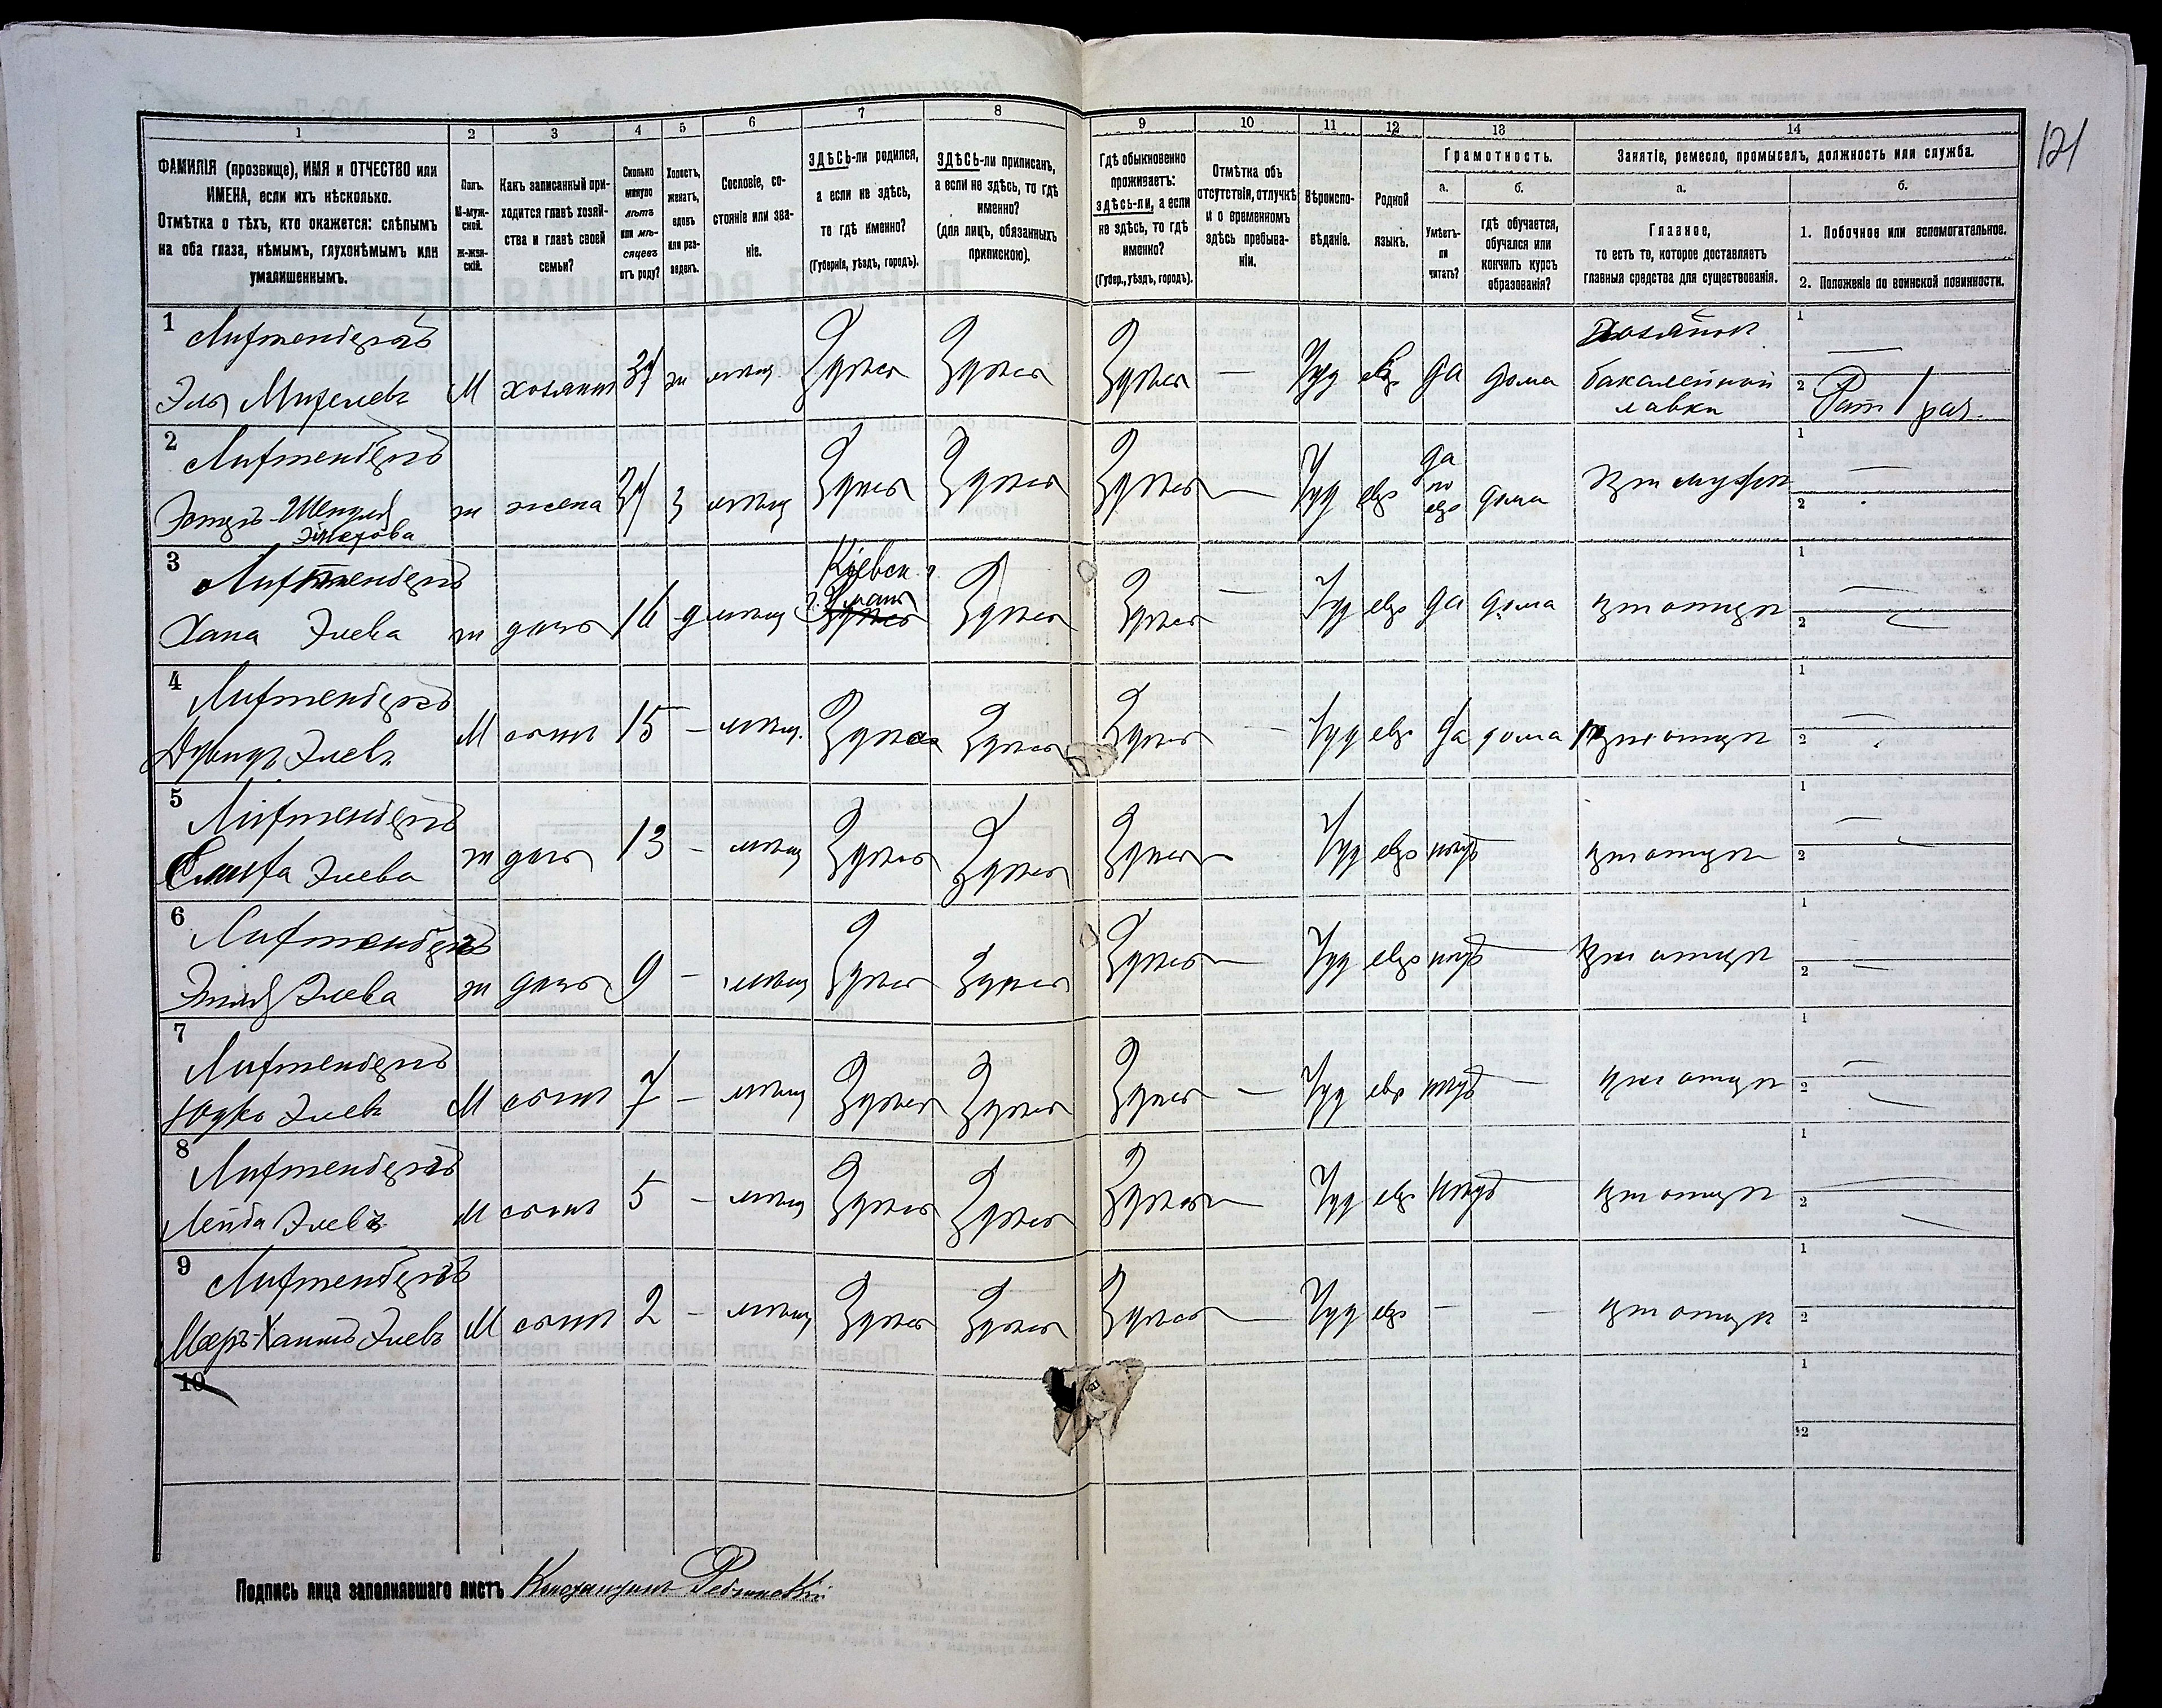 121
1 2 3 4 5 6 7 8 9 10 11 12 13 14
ФАМИЛІЯ (прозвище), ИМЯ и ОТЧЕСТВО или
ИМЕНА, если ихъ нѣсколько.
Отмѣтка о тѣхъ, кто окажется: слѣпымъ
на оба глаза, нѣмымъ, глухонѣмымъ или
умалишеннымъ.
Полъ.
М-муж-
ской.
Ж-жен-
скій.
Какъ записанный при-
ходится главѣ хозяй-
ства и главѣ своей
семьи?
Сколько
минуло
лѣтъ
или мѣ-
сяцевъ
отъ роду?
Холостъ,
женатъ,
вдовъ
или раз-
веденъ.
Сословіе, со-
стояніе или зва-
ніе.
ЗДѢСЬ-ли родился,
а если не здѣсь,
то гдѣ именно?
(Губернія, уѣздъ, городъ).
ЗДѢСЬ-ли приписанъ,
а если не здѣсь, то гдѣ
именно?
(для лицъ, обязанныхъ
припискою).
Гдѣ обыкновенно
проживаетъ:
здѣсь-ли, а если
не здѣсь, то гдѣ
именно?
(Губер., уѣздъ, городъ).
Отмѣтка объ
отсутствіи, отлучкѣ
и о временномъ
здѣсь пребыва-
ніи.
Вѣроиспо-
вѣданіе.
Родной
языкъ.
Грамотность.
а.
Умѣетъ-
ли
читать?
б.
гдѣ обучается,
обучался или
кончилъ курсъ
образованія?
Занятіе, ремесло, промыселъ, должность или служба.
а.
Главное,
то есть то, которое доставляетъ
главныя средства для существованія.
б.
1. Побочное или вспомогательное.
2. Положеніе по воинской повинности.
1
Лифтенбергъ
Эль М хозяинъ 37 ж мѣщ Здѣсь Здѣсь Здѣсь — Іуд евр да дома
Хозяинъ
бакалейной
лавки
1 —
2 Рат 1 раз.
2
Лифтенбергъ
ж жена 37 з мѣщ Здѣсь Здѣсь Здѣсь — Іуд евр
да
по
евр
дома при мужѣ
1 —
2
3
Лифтенбергъ
Хана Элева ж дочь 16 д мѣщ
Кіевск.
г. Умань
Здѣсь
Здѣсь Здѣсь — Іуд евр да дома при отцѣ
1 —
2 —
4
Лифтенбергъ
Элевъ М сынъ 15 — мѣщ. Здѣсь Здѣсь Здѣсь — Іуд евр да дома при отцѣ
1 —
2
5
Лифтенбергъ
Элева ж дочь 13 — мѣщ Здѣсь Здѣсь Здѣсь — Іуд евр нѣтъ — при отцѣ
1 —
2 —
6
Лифтенбергъ
Элева ж дочь 9 — мѣщ Здѣсь Здѣсь Здѣсь — Іуд евр нѣтъ — при отцѣ
1 —
2 —
7
Лифтенбергъ
Юдко Элевъ М сынъ 7 — мѣщ Здѣсь Здѣсь Здѣсь — Іуд евр нѣтъ — при отцѣ
1 —
2 —
8
Лифтенбергъ
Лейба Элевъ М сынъ 5 — мѣщ Здѣсь Здѣсь Здѣсь — Іуд евр нѣтъ — при отцѣ
1 —
2 —
9
Лифтенбергъ
Элевъ М сынъ 2 — мѣщ Здѣсь Здѣсь Здѣсь — Іуд евр — — при отцѣ
1
2
10
1
2
Подпись лица заполнявшаго листъ